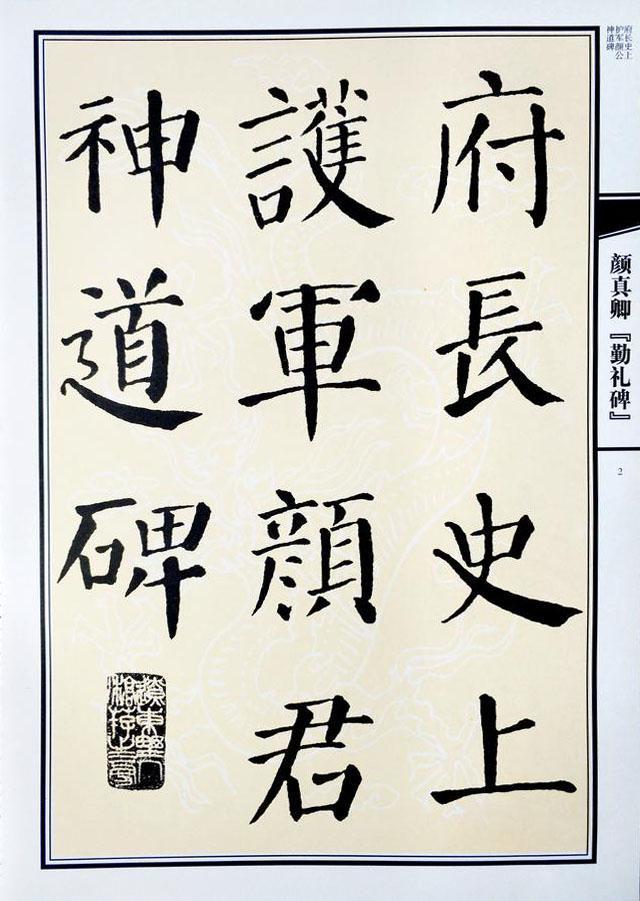 府長史上
護軍顏君
神道碑
府长史上
护军颜公
神道碑
颜真卿『勤礼碑』
2